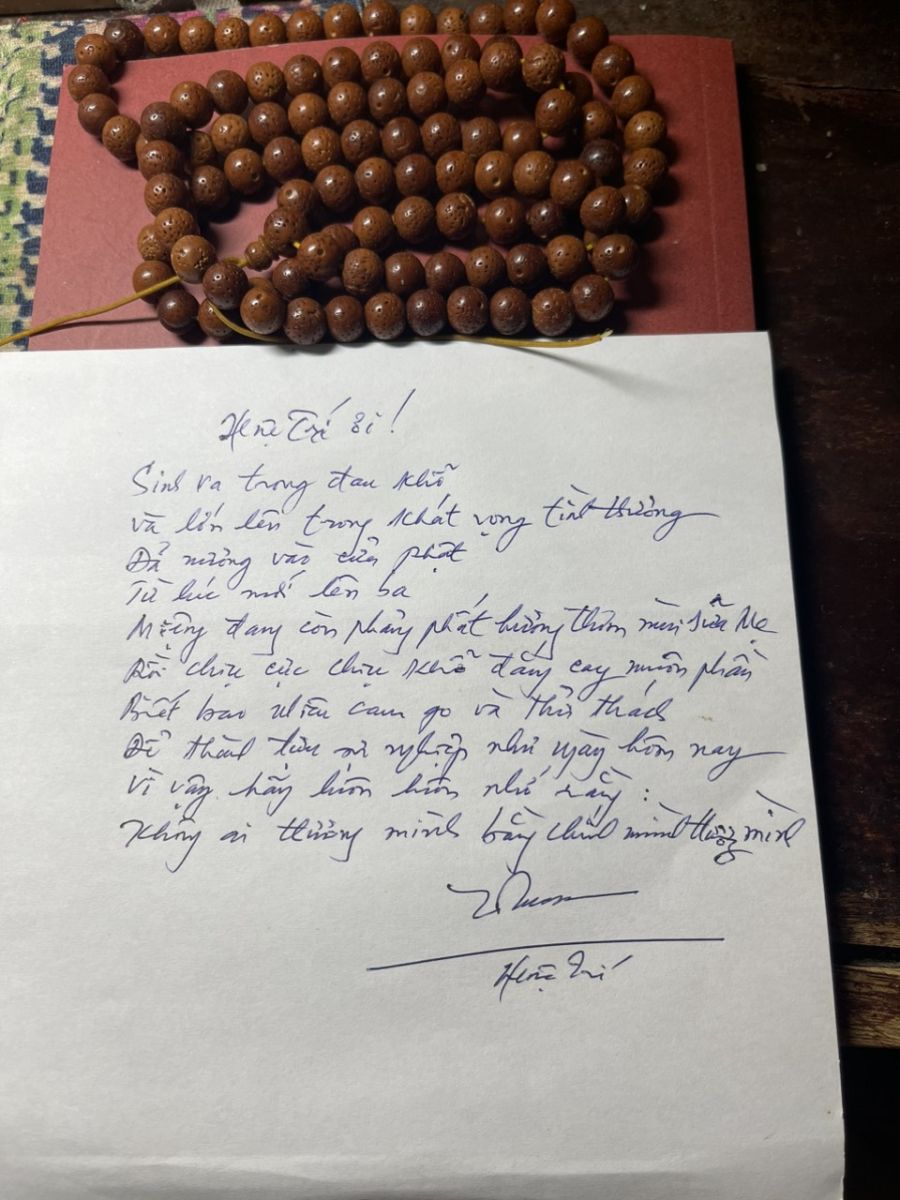 Huệ Trí ơi!
Sinh ra trong đau khổ
và lớn lên trong khát vọng tình thương
Đã nương vào cửa phật
Từ lúc mới lên ba
Miệng đang còn phảng phất hương thơm mùi sữa Mẹ
Rồi chịu cực chịu khổ đắng cay muôn phần
Biết bao nhiêu cam go và thử thách
Để thành tựu sự nghiệp như ngày hôm nay
Vì vậy hãy luôn luôn nhớ rằng:
Không ai thương mình bằng chính mình thương mình
Huệ Trí